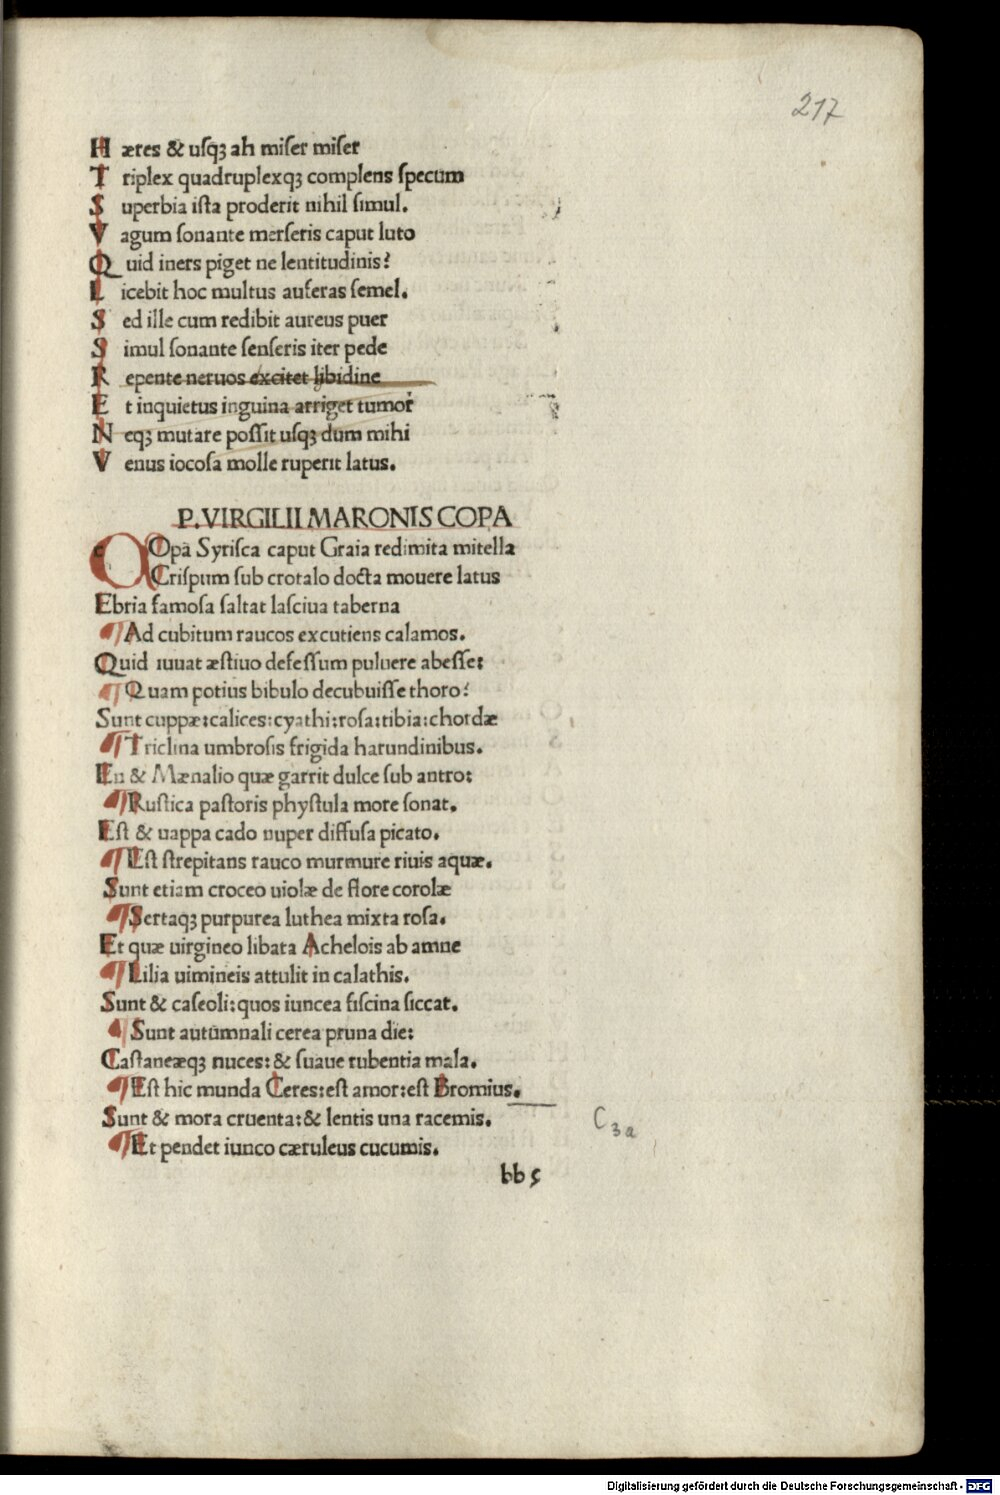 217
H æres & uſqꝫ ah miſer miſer
T riplex quadruplexqꝫ complens ſpecum
S uperbia iſta proderit nihil ſimul.
V agum ſonante merſeris caput luto
Q uid iners piget ne lentitudinis?
L icebit hoc multus auferas ſemel.
S ed ille cum redibit aureus puer
S imul ſonante ſenſeris iter pede
R epente neruos excitet libidine
E t inquietus inguina arriget tumor
N eqꝫ mutare poſſit uſqꝫ dum mihi
V enus iocoſa molle ruperit latus.
P. VIRGILII MARONIS COPA
COpa Syriſca caput Graia redimita mitella
Criſpum ſub crotalo docta mouere latus
Ebria famoſa ſaltat laſciua taberna
¶Ad cubitum raucos excutiens calamos.
Quid iuuat æſtiuo defeſſum puluere abeſſe:
¶Quam potius bibulo decubuiſſe thoro?
Sunt cuppæ:calices:cyathi:roſa:tibia:chordæ
¶Triclina umbroſis frigida harundinibus.
En & Mænalio quæ garrit dulce ſub antro:
¶Ruſtica paſtoris phyſtula more ſonat.
Eſt & uappa cado nuper diffuſa picato.
¶Eſt ſtrepitans rauco murmure riuis aquæ.
Sunt etiam croceo uiolæ de flore corolæ
¶Sertaqꝫ purpurea luthea mixta roſa.
Et quæ uirgineo libata Achelois ab amne
¶Lilia uimineis attulit in calathis.
Sunt & caſeoli:quos iuncea fiſcina ſiccat.
¶Sunt autūmnali cerea pruna die:
Caſtaneæqꝫ nuces:& ſuaue rubentia mala.
¶Eſt hic munda Ceres:eſt amor:eſt Bromius.
Sunt & mora cruenta:& lentis una racemis.
¶Et pendet iunco cæruleus cucumis.
C3a
bb 5
Digitalisierung gefördert durch die Deutsche Forschungsgemeinschaft - DFG